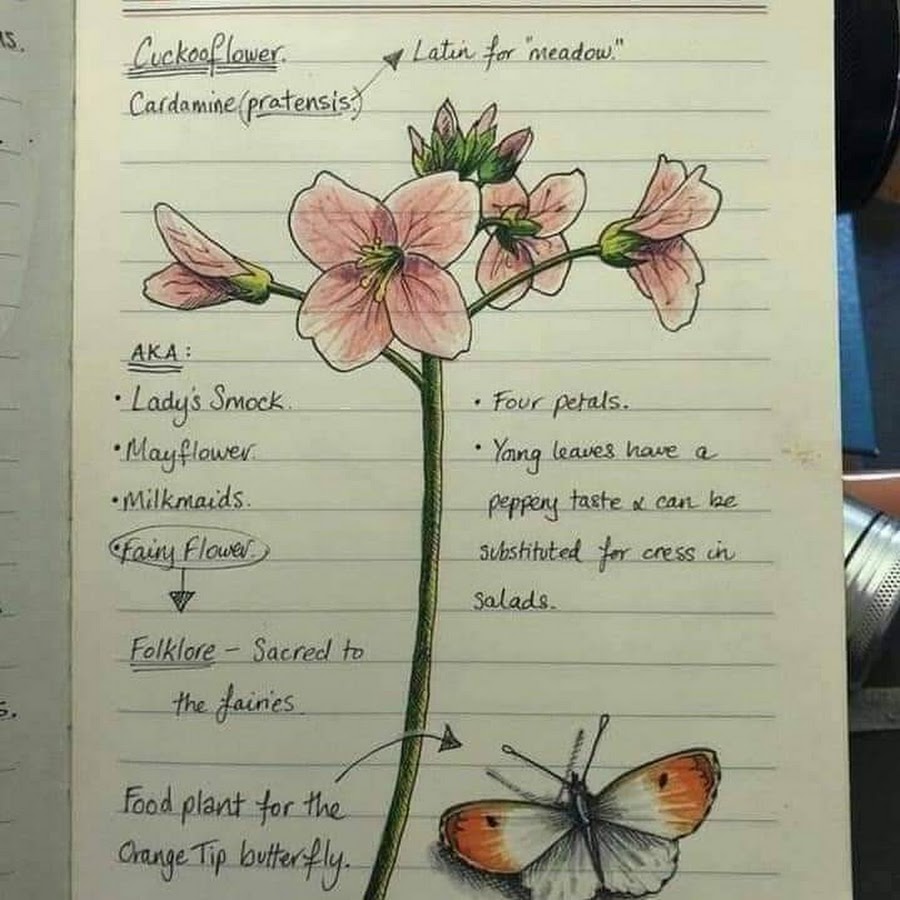 Cuckooflower.
Latin for "meadow."
Cardamine (pratensis.)
AKA:
• Lady's Smock.
• Mayflower.
• Milkmaids.
• Fairy Flower.
Folklore – Sacred to
the fairies
• Four petals.
• Young leaves have a
peppery taste & can be
substituted for cress in
salads.
Food plant for the
Orange Tip butterfly.